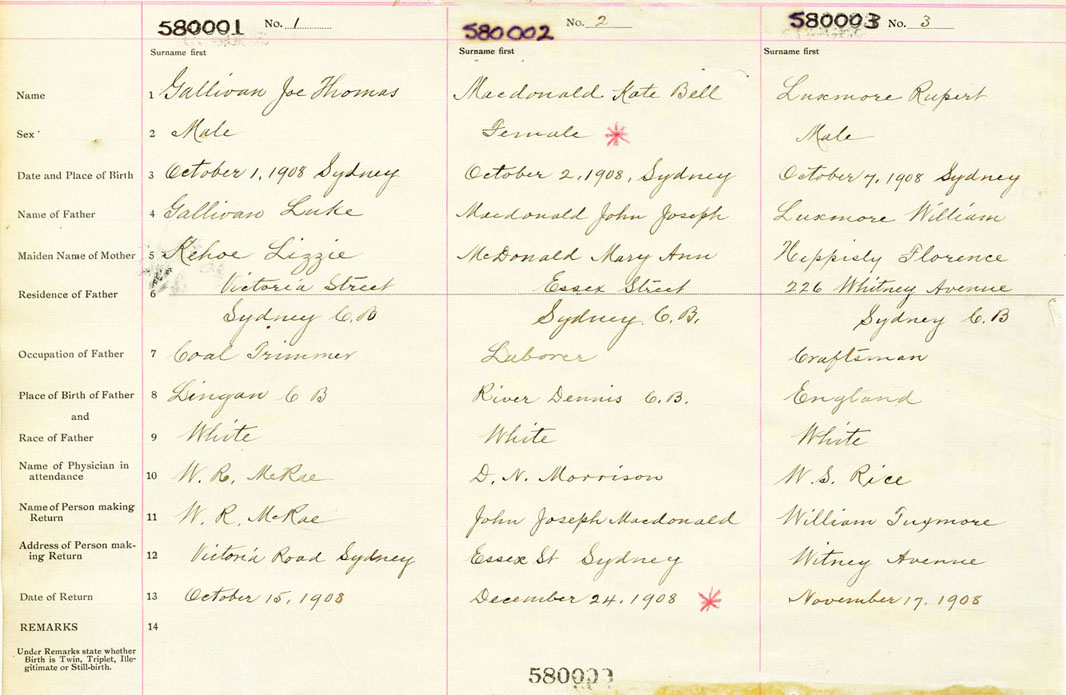 580001 No. 1 580002 No. 2 580003 No. 3
Surname first Surname first Surname first
Name 1 Gallivan Joe Thomas Macdonald Kate Bell Luxmore Rupert
Sex 2 Male Female Male
Date and Place of Birth 3 October 1, 1908 Sydney October 2, 1908, Sydney October 7, 1908 Sydney
Name of Father 4 Gallivan Luke Macdonald John Joseph Luxmore William
Maiden Name of Mother 5 Kehoe Lizzie McDonald Mary Ann Heppisly Florence
Residence of Father 6 Victoria Street Essex Street 226 Whitney Avenue
Sydney C.B Sydney C.B. Sydney C.B
Occupation of Father 7 Coal Trimmer Laborer Craftsman
Place of Birth of Father 8 Lingan C B River Dennis C.B. England
and
Race of Father 9 White White White
Name of Physician in
attendance 10 W. R. McRae D. N. Morrison W. S. Rice
Name of Person making
Return 11 W. R. McRae John Joseph Macdonald William Luxmore
Address of Person mak-
ing Return 12 Victoria Road Sydney Essex St Sydney Witney Avenue
Date of Return 13 October 15, 1908 December 24, 1908 November 17, 1908
REMARKS 14
Under Remarks state whether
Birth is Twin, Triplet, Ille-
gitimate or Still-birth.
580003